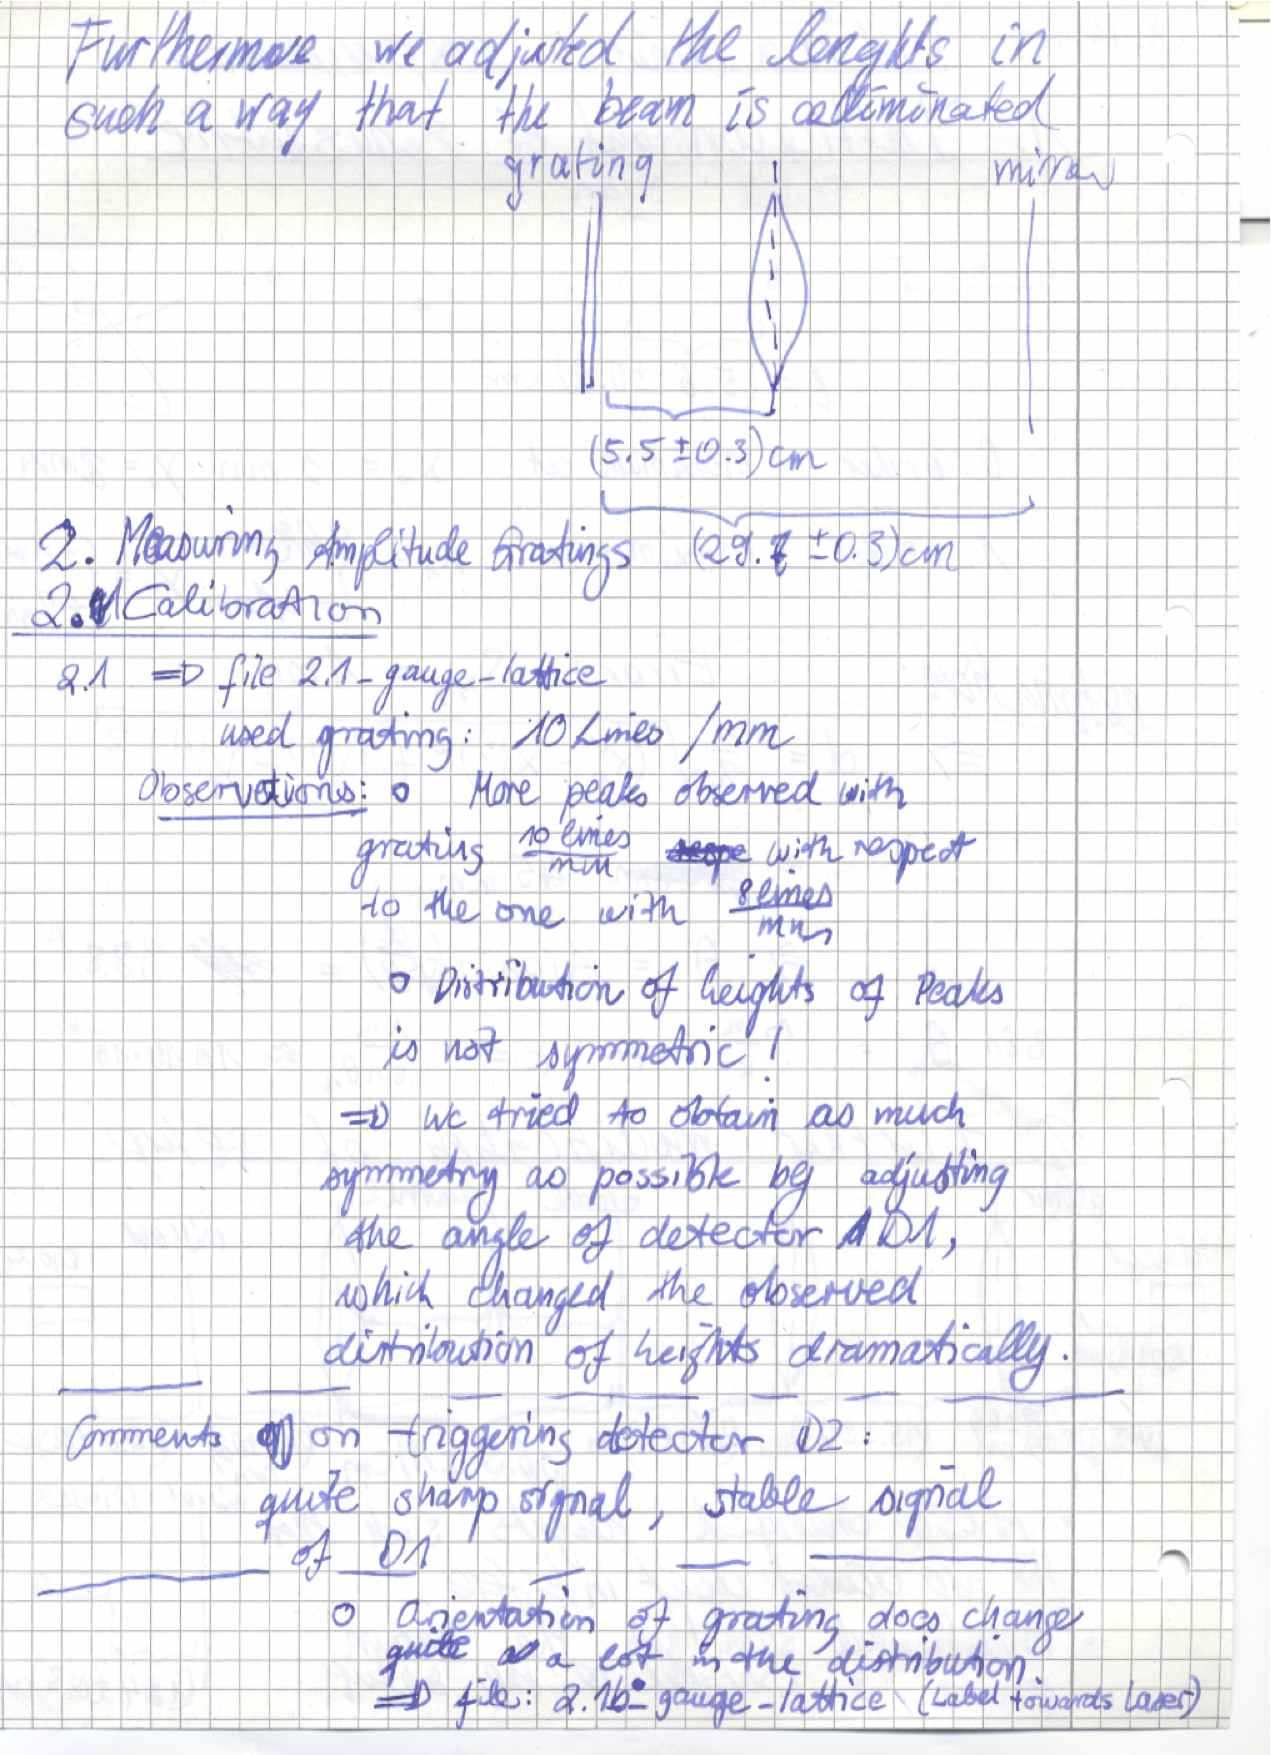 Furthermore we adjusted the lenghts in
such a way that the beam is colliminated
grating mirror
(5.5 ± 0.3) cm
2. Measuring Amplitude Gratings (29.7 ± 0.3) cm
2.1 Calibration
2.1 => file 2.1-gauge-lattice
used grating: 10 Lines /mm
Observations: o More peaks observed with
grating 10 lines/mm with respect
to the one with 8 lines/mm
o Distribution of heights of Peaks
is not symmetric!
=> we tried to obtain as much
symmetry as possible by adjusting
the angle of detector D1,
which changed the observed
distribution of heights dramatically.
Comments on triggering detector D2:
quite sharp signal, stable signal
of D1
o Orientation of grating does change
quite a lot in the distribution.
=> file: 2.1b-gauge-lattice (Label towards laser)